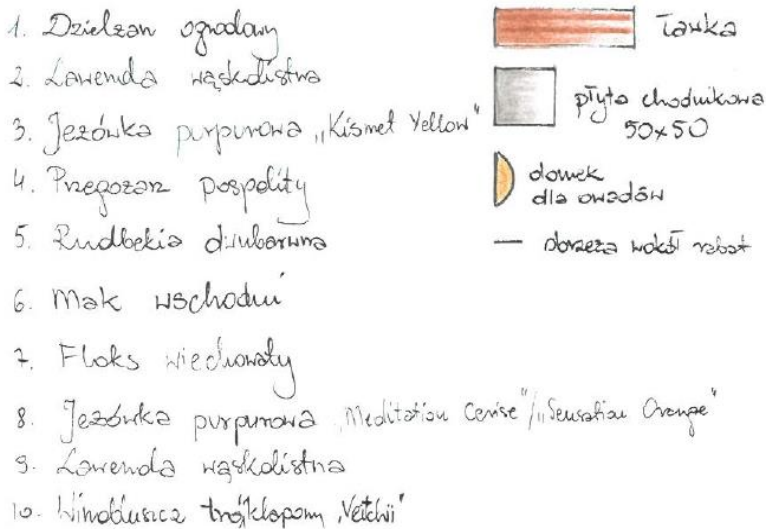 1. Dzielżan ogrodowy
2. Lawenda wąskolistna
3. Jeżówka purpurowa „Kismet Yellow"
4. Przegorzan pospolity
5. Rudbekia dwubarwna
6. Mak wschodni
7. Floks wiechowaty
8. Jeżówka purpurowa „Meditation Cerise"/„Sensation Orange"
9. Lawenda wąskolistna
10. Winobluszcz trójklapowy „Veitchii"
ławka
płyta chodnikowa
50x50
domek
dla owadów
obrzeża wokół rabat